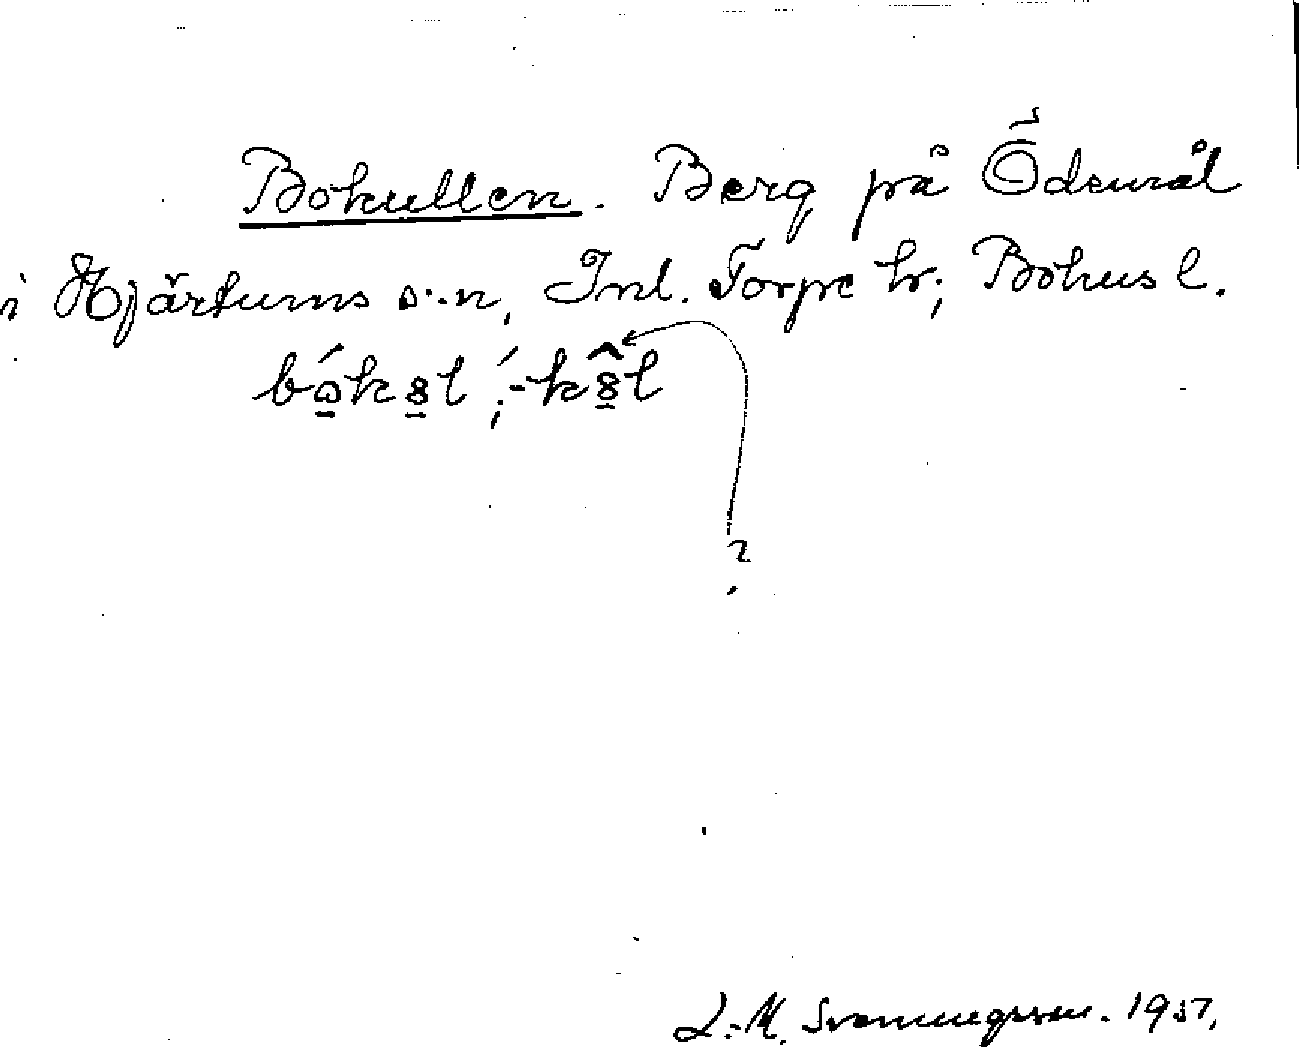 Bokullen. Berg på Ödsmål
i Hjärtums s:n, Inl. Torpe hr; Bohus l.
?
L.-M. Svenungsson. 1937.